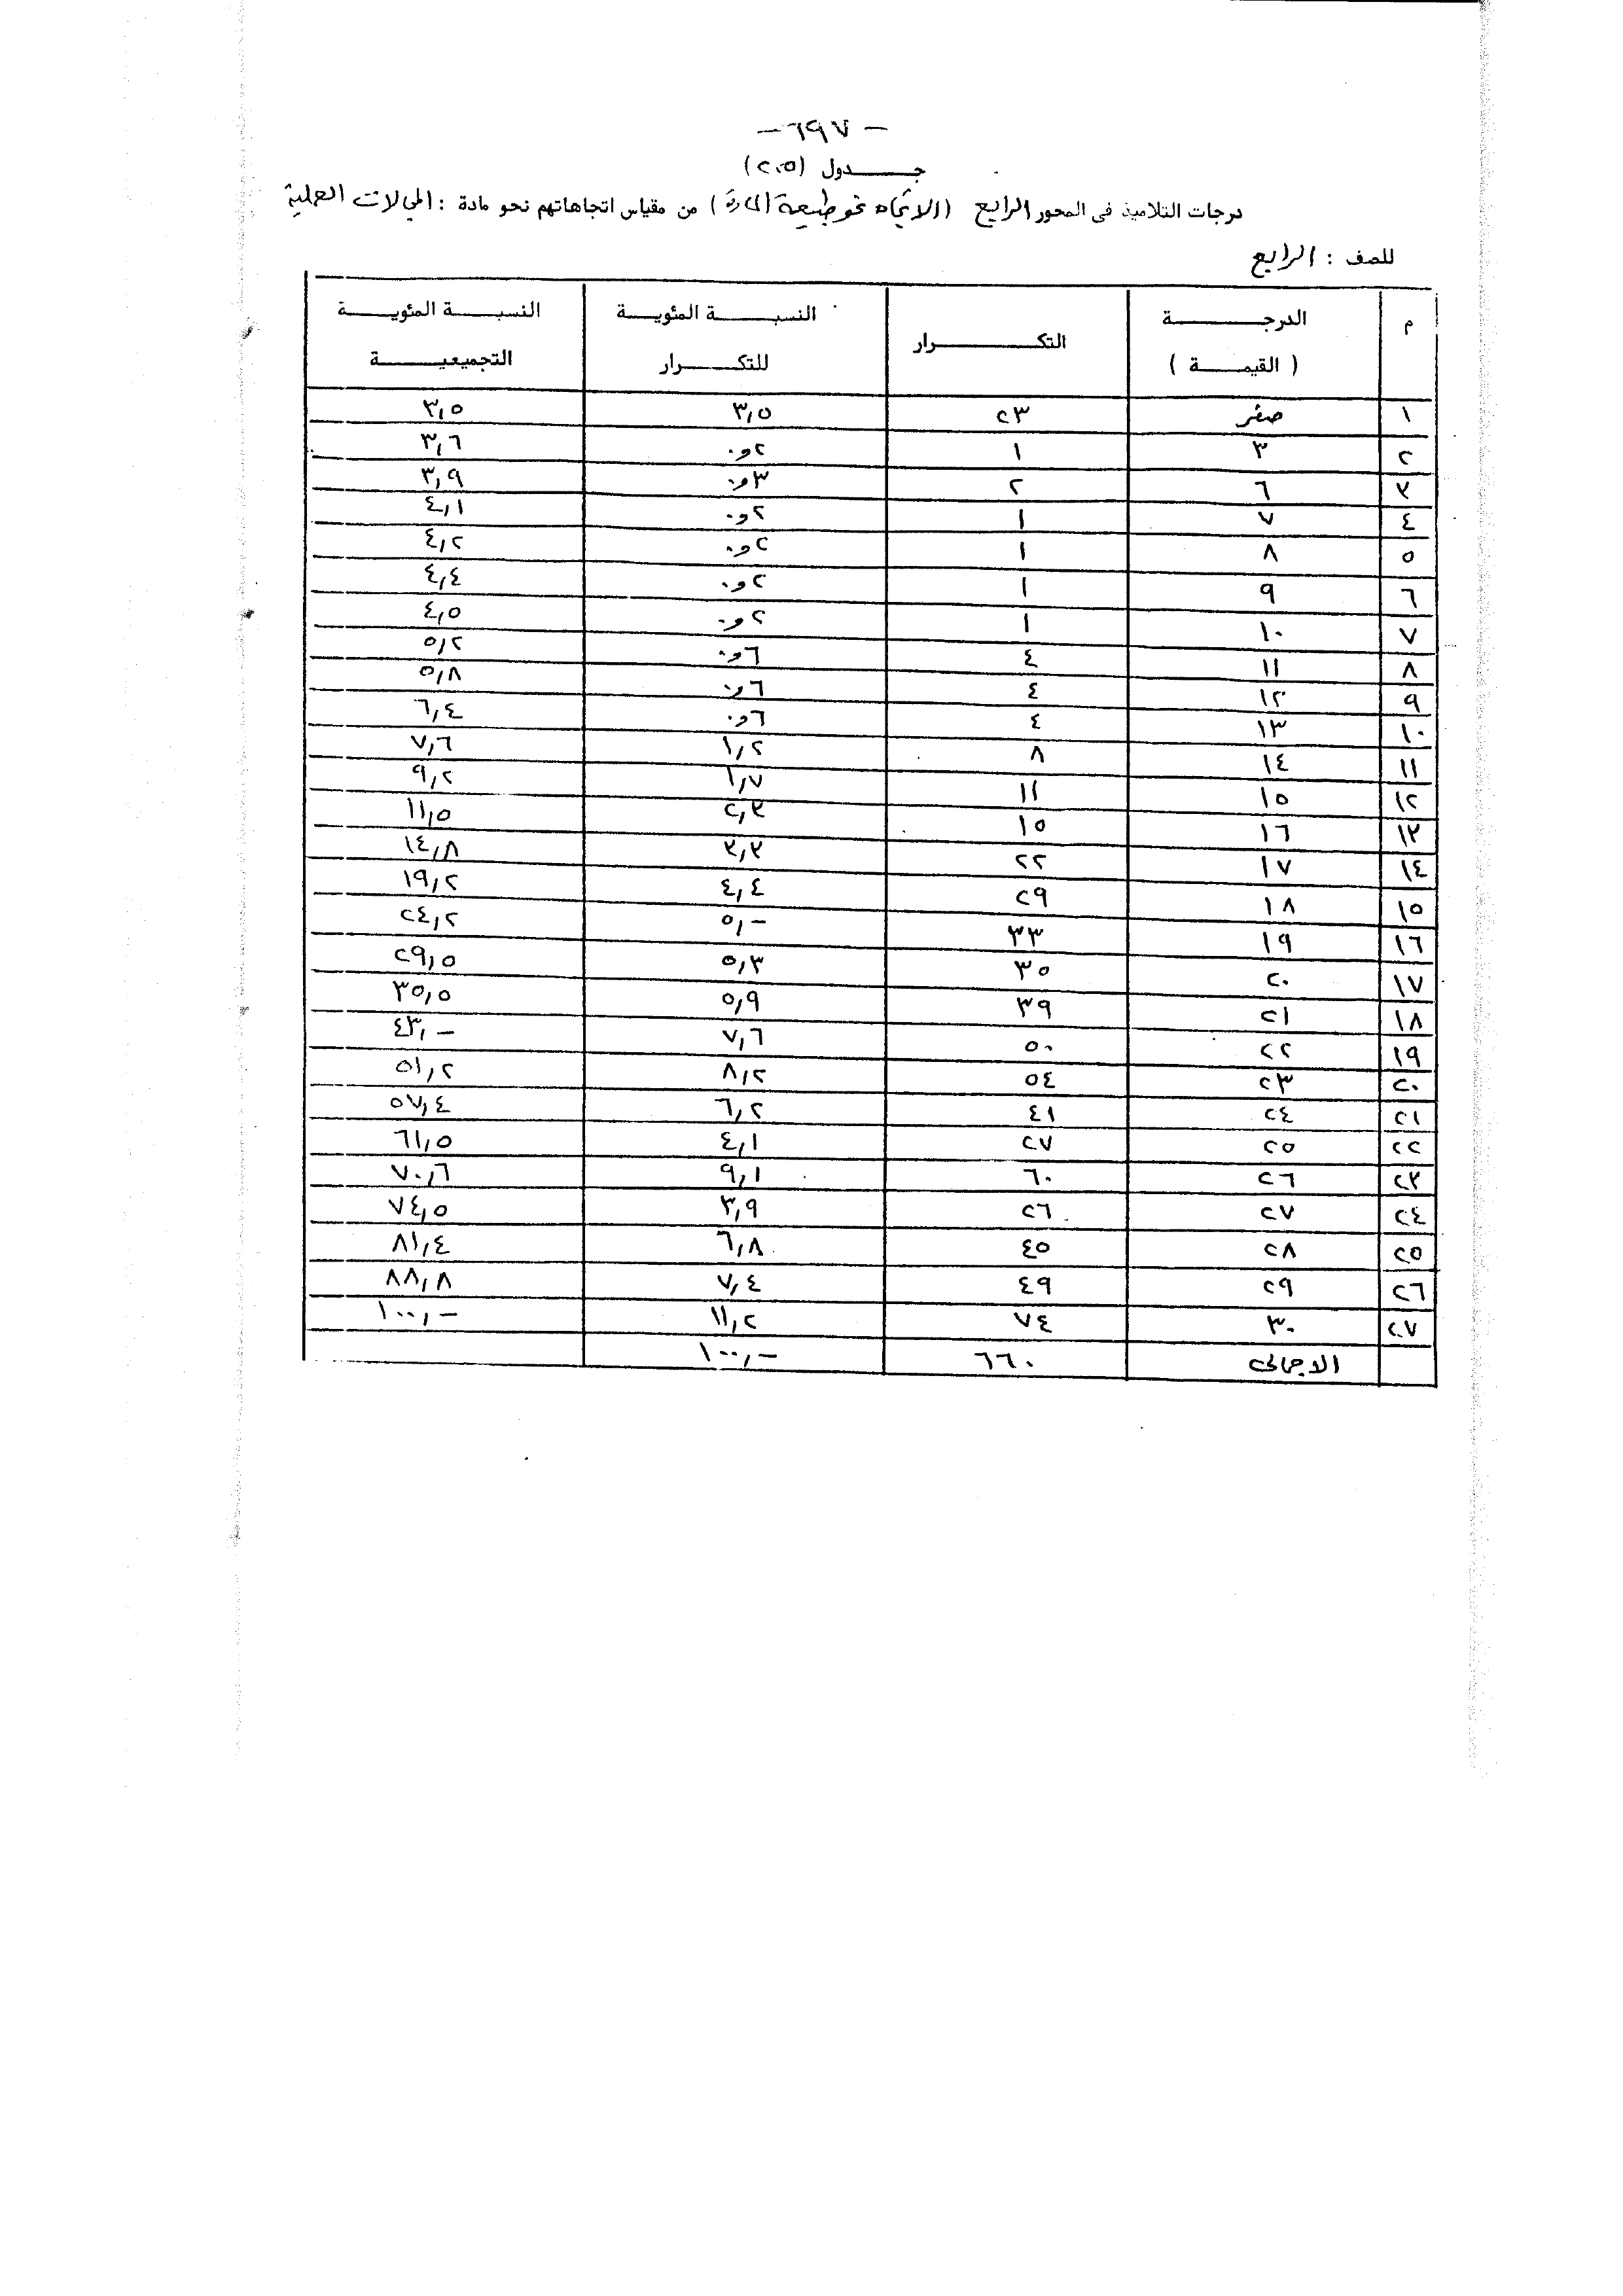 - ٦٩٧ -
جــــدول (٢٠٥)
درجات التلاميذ فى المحور الرابع (الاتجاه نحو طبيعة المادة) من مقياس اتجاهاتهم نحو مادة : المجالات العملية
للصف : الرابع
م الدرجــــة (القيمــــة) التكــــرار النسبــــة المئويــــة للتكــــرار النسبــــة المئويــــة التجميعيــــة
١ صفر ٢٣ ٣,٥ ٣,٥
٢ ٣ ١ ٠,٢ ٣,٦
٣ ٦ ٢ ٠,٣ ٣,٩
٤ ٧ ١ ٠,٢ ٤,١
٥ ٨ ١ ٠,٢ ٤,٢
٦ ٩ ١ ٠,٢ ٤,٤
٧ ١٠ ١ ٠,٢ ٤,٥
٨ ١١ ٤ ٠,٦ ٥,٢
٩ ١٢ ٤ ٠,٦ ٥,٨
١٠ ١٣ ٤ ٠,٦ ٦,٤
١١ ١٤ ٨ ١,٢ ٧,٦
١٢ ١٥ ١١ ١,٧ ٩,٢
١٣ ١٦ ١٥ ٢,٣ ١١,٥
١٤ ١٧ ٢٢ ٣,٣ ١٤,٨
١٥ ١٨ ٢٩ ٤,٤ ١٩,٢
١٦ ١٩ ٣٣ ٥,- ٢٤,٢
١٧ ٢٠ ٣٥ ٥,٣ ٢٩,٥
١٨ ٢١ ٣٩ ٥,٩ ٣٥,٥
١٩ ٢٢ ٥٠ ٧,٦ ٤٣,-
٢٠ ٢٣ ٥٤ ٨,٢ ٥١,٢
٢١ ٢٤ ٤١ ٦,٢ ٥٧,٤
٢٢ ٢٥ ٢٧ ٤,١ ٦١,٥
٢٣ ٢٦ ٦٠ ٩,١ ٧٠,٦
٢٤ ٢٧ ٢٦ ٣,٩ ٧٤,٥
٢٥ ٢٨ ٤٥ ٦,٨ ٨١,٤
٢٦ ٢٩ ٤٩ ٧,٤ ٨٨,٨
٢٧ ٣٠ ٧٤ ١١,٢ ١٠٠,-
الاجمالى ٦٦٠ ١٠٠,-